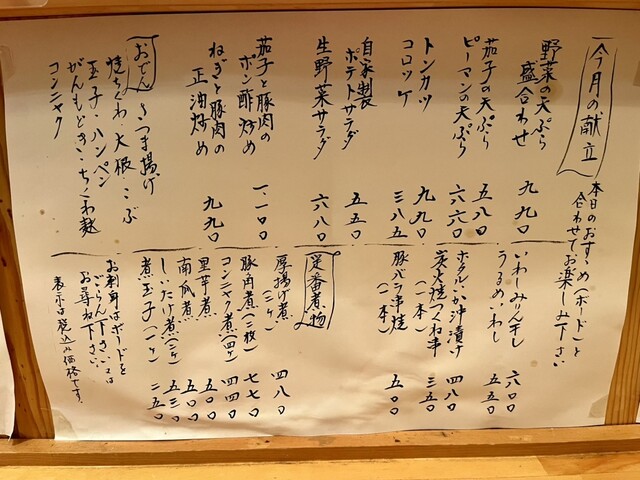 今月の献立
本日のおすすめ(ボード)と
合わせてお楽しみ下さい
野菜の天ぷら
盛合わせ 九九〇
茄子の天ぷら 五八〇
ピーマンの天ぷら 六六〇
トンカツ 九九〇
コロッケ 三八五
自家製
ポテトサラダ 五五〇
生野菜サラダ 六八〇
茄子と豚肉の
ポン酢炒め 一、一〇〇
ねぎと豚肉の
正油炒め 九九〇
おでん
さつま揚げ
焼ちくわ・大根・こぶ
玉子・ハンペン
がんもどき・ちくわ麩
コンニャク
いわしみりん干し 六〇〇
うるめいわし 五五〇
ホタルいか沖漬け 四八〇
炭火焼つくね串
(一本) 三五〇
豚バラ串焼
(一本) 五〇〇
定番煮物
厚揚げ煮
(二ヶ) 四八〇
豚肉煮(三枚) 七七〇
コンニャク煮(四ヶ) 四四〇
里芋煮 五〇〇
南瓜煮 五〇〇
しいたけ煮(三ヶ) 五三〇
煮玉子(一ヶ) 二五〇
お刺身はボードを
ごらん下さい又は
お尋ね下さい。
表示は税込み価格です。